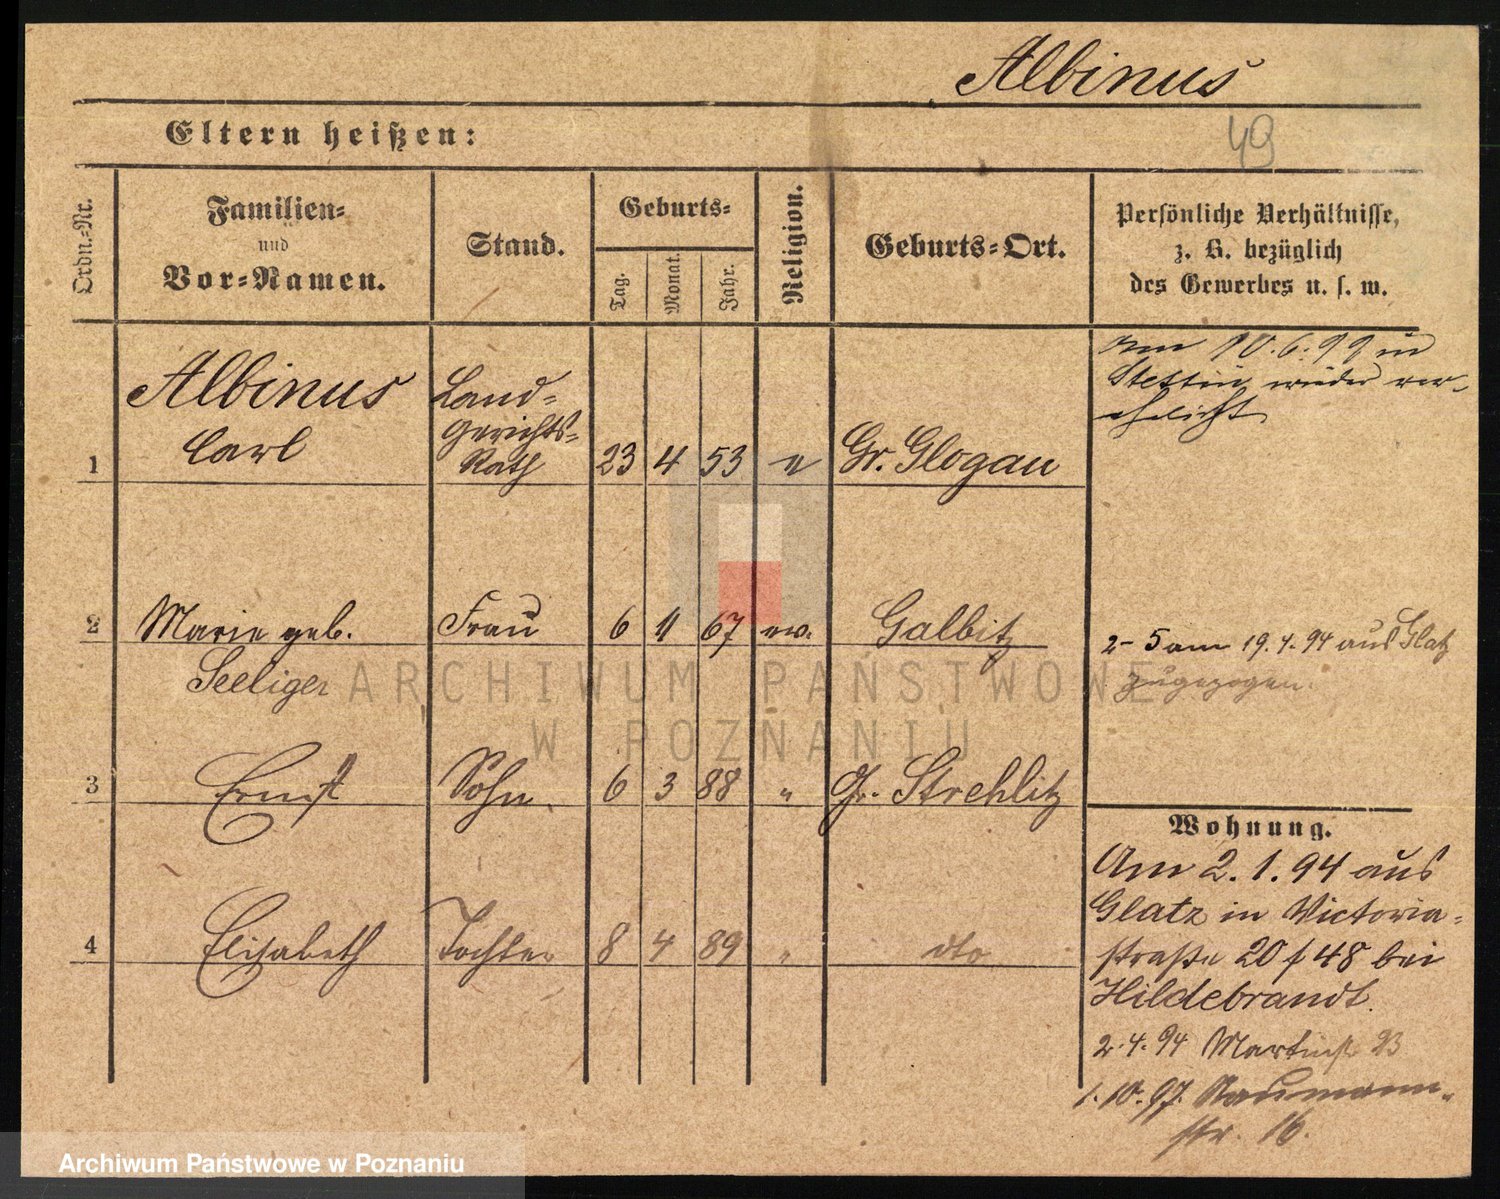 Albinus
49
Eltern heißen:
Ordn.-Nr.
Familien-
und
Vor-Namen.
Stand.
Geburts-
Tag.
Monat.
Jahr.
Religion.
Geburts-Ort.
Persönliche Verhältnisse,
z. B. bezüglich
des Gewerbes u. s. w.
am 10.6.99 in
Stettin wieder ver-
ehelicht
Albinus
Carl
Land-
gerichts-
Rath
1
23 4 53
Gr. Glogau
2 Marie geb. Frau 6 1 67 ev. Galbitz
Seeliger
2-5 am 19.4.94 aus Glatz
zugezogen.
ARCHIWUM PAŃSTWOWE
W POZNANIU
3 Ernst Sohn 6 3 88 " Gr. Strehlitz
4 Elisabeth Tochter 8 4 89 " dto
Wohnung.
Am 2.1.94 aus
Glatz in Victoria-
straße 20 f 48 bei
Hildebrandt.
2.4.94 Martinstr 23
1.10.97. Naumann-
str. 16.
Archiwum Państwowe w Poznaniu